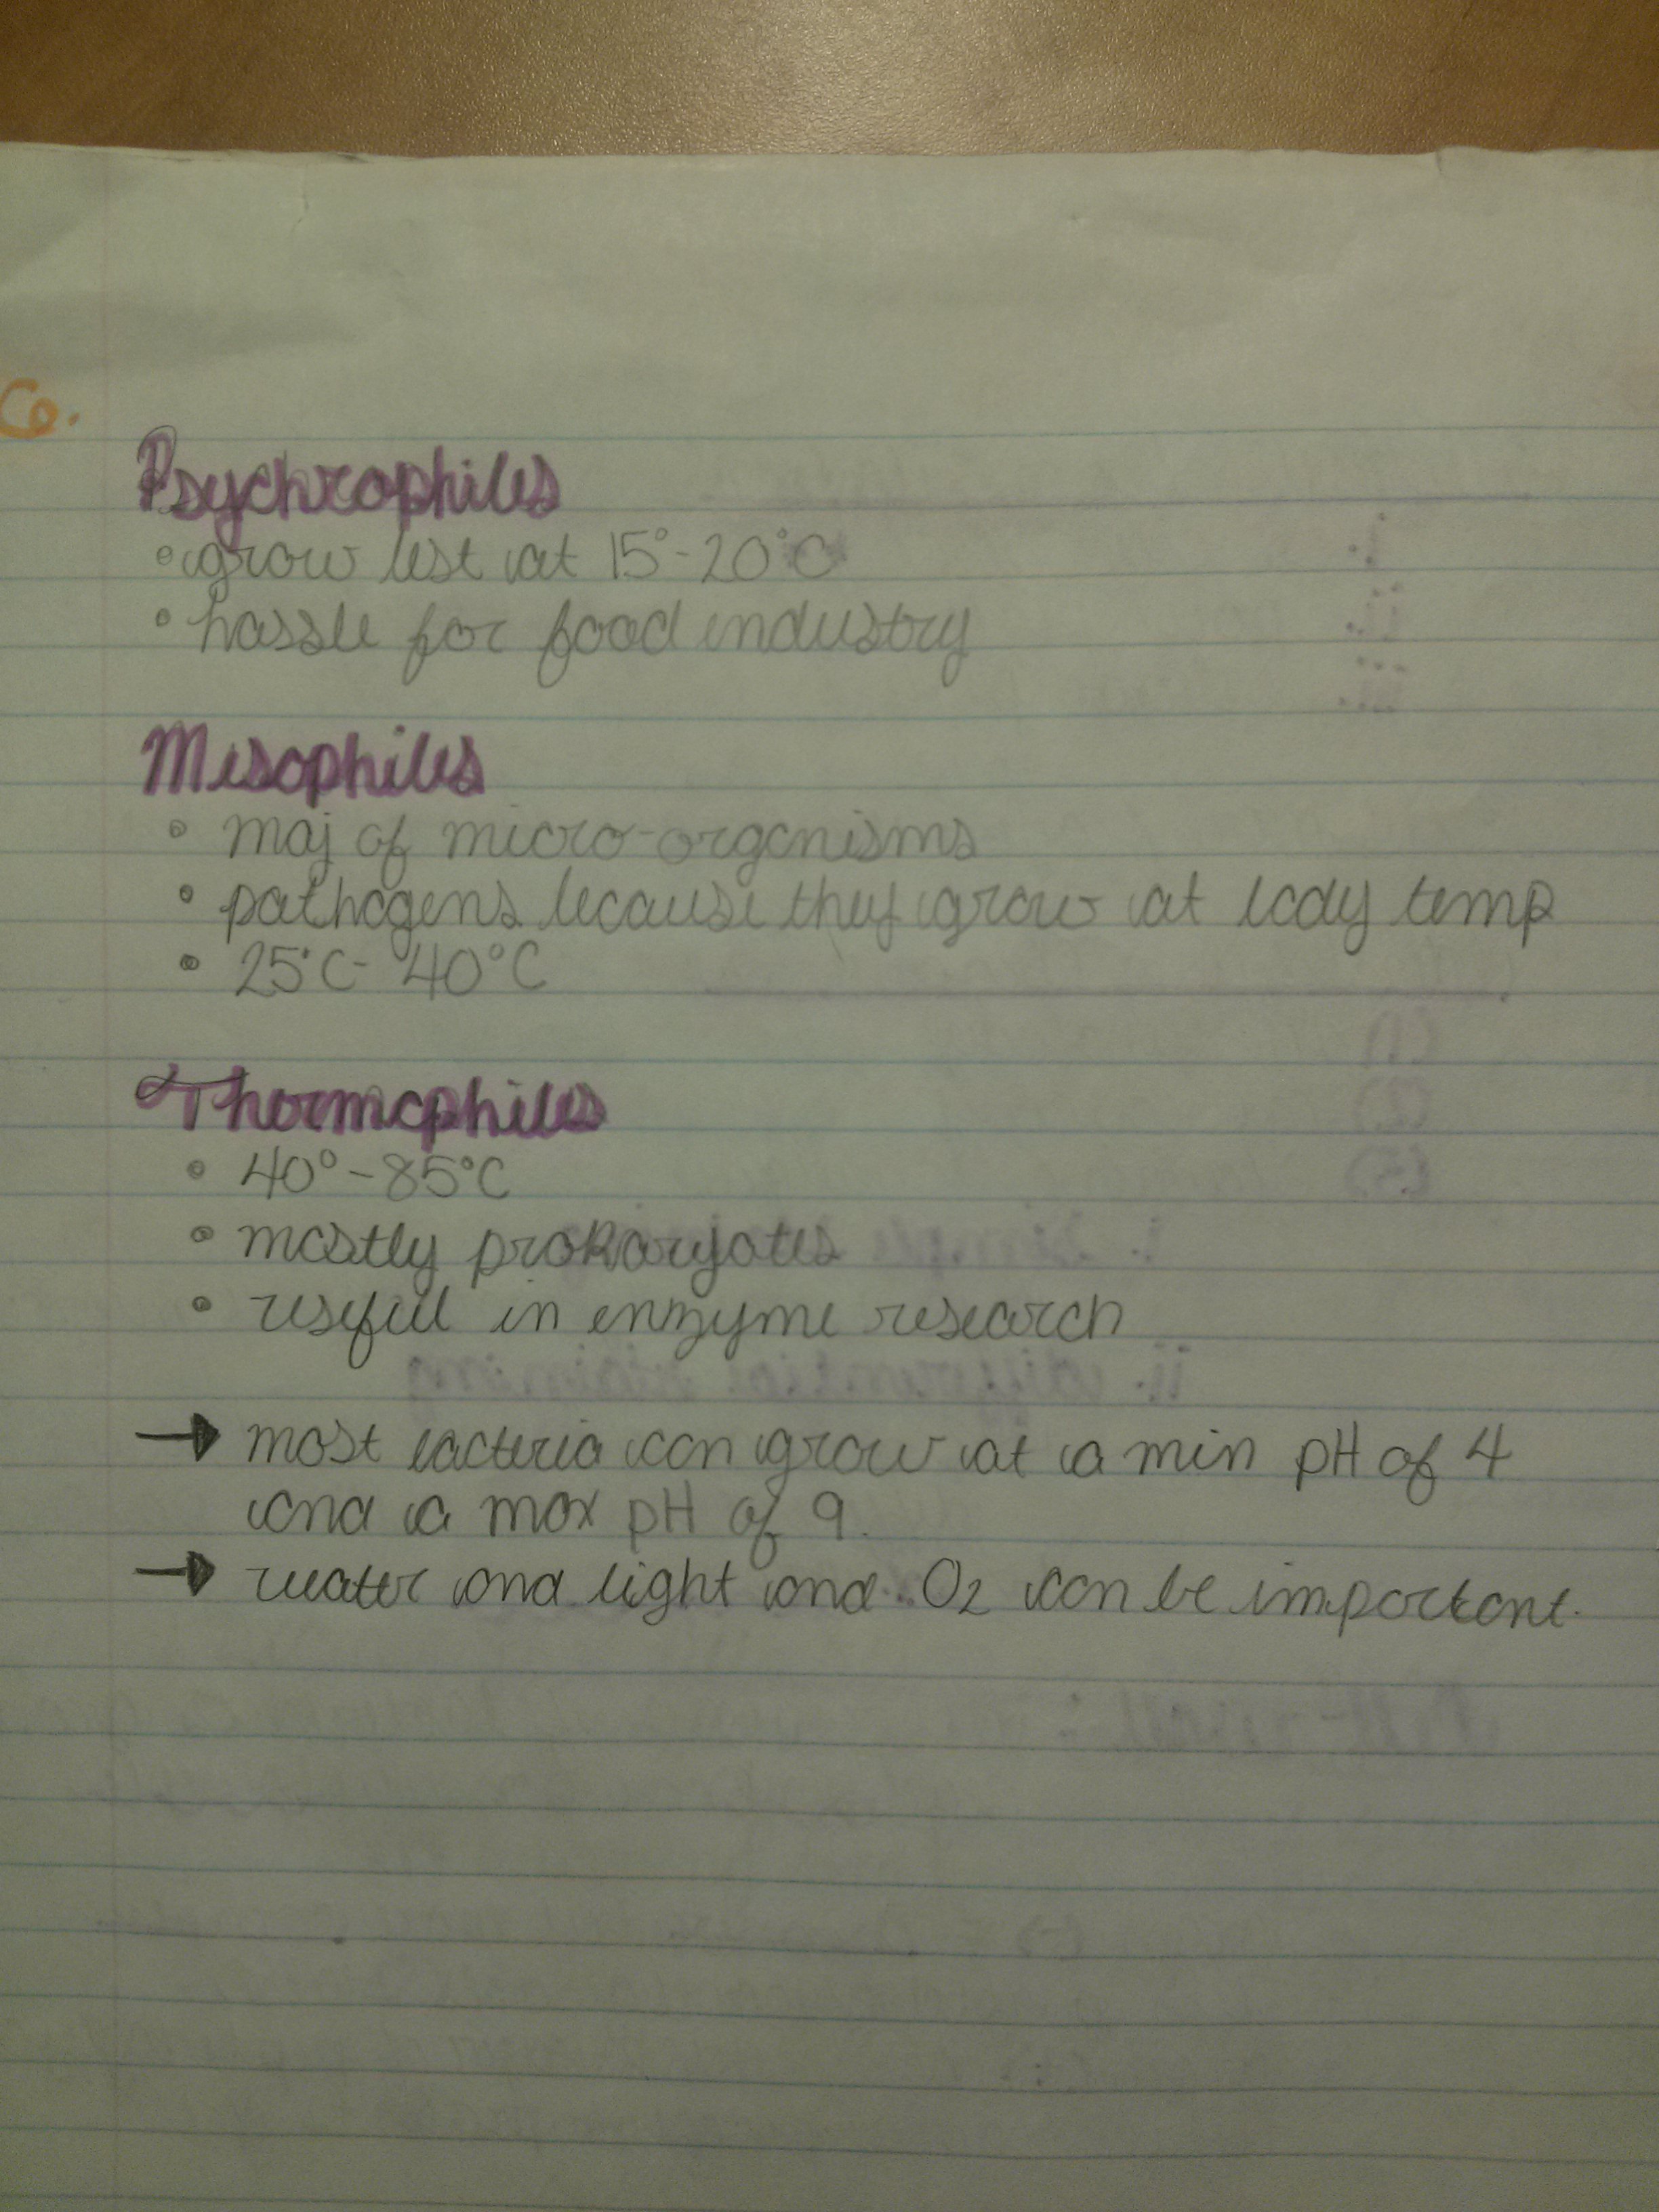 6.
Psychrophiles
• grow best at 15°-20°C
• hassle for food industry
Mesophiles
• maj of micro-organisms
• pathogens because they grow at body temp
• 25°C- 40°C
Thermophiles
• 40°-85°C
• mostly prokaryotes
• useful in enzyme research
→ most bacteria can grow at a min pH of 4
and a max pH of 9.
→ water and light and O2 can be important.
i. simple
ii. differential staining